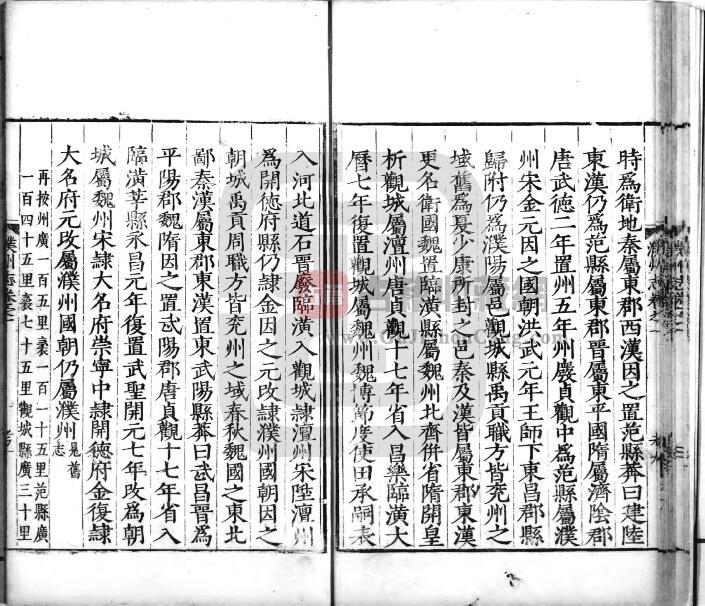 時爲衛地秦屬東郡西漢因之置范縣莽曰建陸
東漢仍爲范縣屬東郡晉屬東平國隋屬濟陰郡
唐武德二年置州五年州廢貞觀中爲范縣屬濮
州宋金元因之國朝洪武元年王師下東昌郡縣
歸附仍爲濮陽屬邑觀城縣禹貢職方皆兖州之
域舊爲夏少康所封之邑秦及漢皆屬東郡東漢
更名衛國魏置臨潢縣屬魏州北齊併省隋開皇
析觀城屬澶州唐貞觀十七年省入昌樂臨潢大
曆七年復置觀城屬魏州魏博節度使田承嗣表
入河北道石晉廢臨潢入觀城隷澶州宋陞澶州
爲開德府縣仍隷金因之元改隷濮州國朝因之
朝城禹貢周職方皆兖州之域春秋魏國之東北
鄙秦漢屬東郡東漢置東武陽縣莽曰武昌晉爲
平陽郡魏隋因之置武陽郡唐貞觀十七年省入
臨潢莘縣永昌元年復置武聖開元七年改爲朝
城屬魏州宋隷大名府崇寧中隷開德府金復隷
大名府元改屬濮州國朝仍屬濮州見舊志
再按州廣一百五里袤一百一十五里范縣廣
一百四十五里袤七十五里觀城縣廣三十里
濮州志卷之一